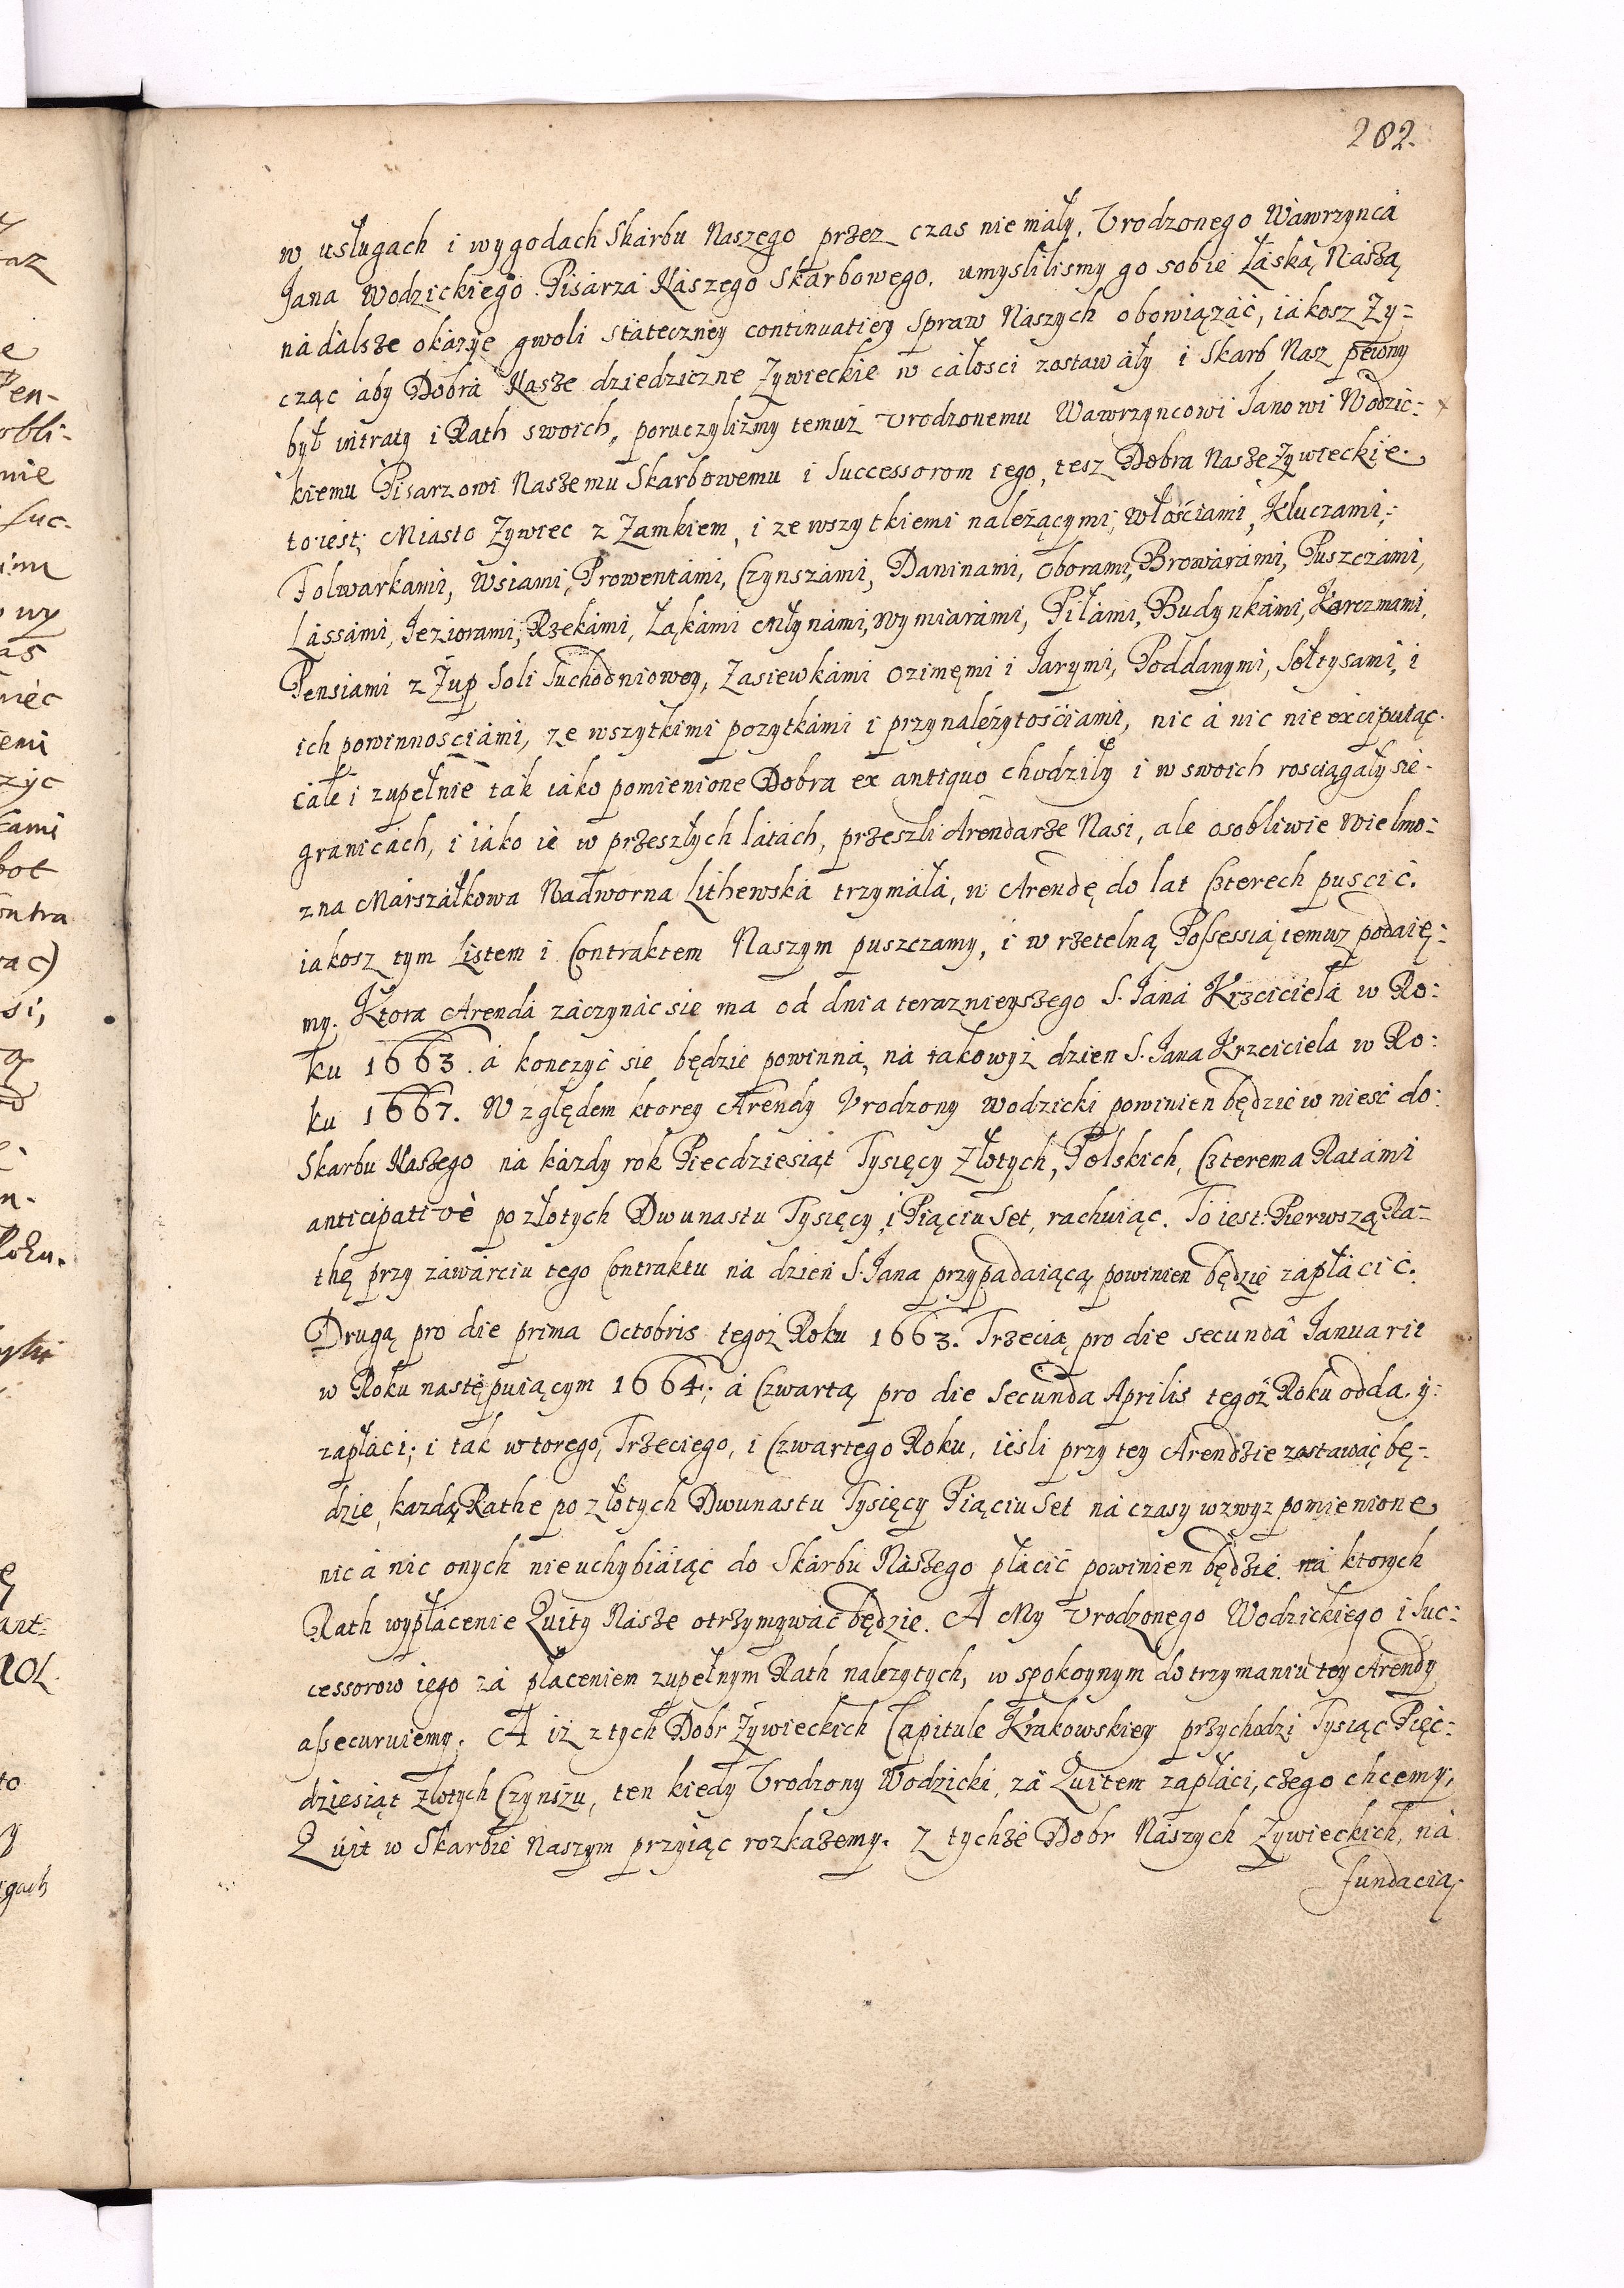 202.
w usługach i wygodach Skárbu Naszego przez czas nie máły, Vrodzonego Wáwrzyncá
Jana Wodzickiego Pisárzá Nászego Skárbowego. umyslilismy go sobie Łáską Nászą
ná dálsze okázye gwoli státeczney continuatiey Spraw Naszych obowiązáć, iákosz Zy-
cząc áby Dobrá Nasze dziedziczne Zywieckie w cáłosci zostawáły i Skarb Nasz pewny
był intraty i Rath swoich, poruczylismy temuż Vrodzonemu Wawrzyncowi Janowi Wodzic-
kiemu Pisarzowi Naszemu Skarbowemu i Successorom iego, tesz Dobra Nasze Zywieckie.
to iest, Miasto Zywiec z Zamkiem, i ze wszytkiemi należącymi, włościami, Kluczami,
Folwarkami, Wsiami, Prowentámi, Czynszámi, Daninami, Oborami, Browárámi, Puszczámi,
Lássámi, Jeziorami, Rzekámi, Łąkámi Młynámi, wymiarámi, Piłámi, Budynkámi, Karczmami,
Pensiami z Żup Soli Suchodniowey, Zasiewkámi ozimęmi i Jarymi, Poddanymi, Sołtysami, i
ich powinnościámi, ze wszytkimi pozytkámi i przynależytościami, nic á nic nie excipuiąc.
cále i zupełnie ták iáko pomienione Dobra ex antiquo chodziły i w swoich rosciągáły sie
granicách, i iáko ie w przeszłych látách, przeszli Arendarze Nasi, ale osobliwie Wielmo-
zna Márszáłkowa Nadworna Lithewská trzymáłá, w Arendę do lat Czterech puscić.
iakosz tym Listem i Contraktem Naszym puszczamy, i w rzetelną Possessią temuz podaię-
my. Ktora Arendá záczynác sie ma od dniá teraznieyszego S. Janá Krzcicielá w Ro-
ku 1663. á konczyć sie będzie powinná, ná tákowyż dzien S. Jana Krzciciela w Ro-
ku 1667. Względem ktorey Arendy Vrodzony Wodzicki powinien będzie wniesć do
Skarbu Naszego ná káżdy rok Piecdziesiąt Tysięcy Złotych, Polskich, Czterema Ratámi
anticipativè po złotych Dwunastu Tysięcy, i Piąciu Set, rachuiąc. To iest: Pierwszą Ra-
thę przy záwárciu tego Contraktu ná dzień S. Jana przypadáiącą powinien będzie zápłácić.
Drugą pro die prima Octobris tegoż Roku 1663. Trzecią pro die secundâ Januarii
w Roku nastę̨puiącym 1664; á Czwartą pro die Secunda Aprilis tegoż Roku odda y
zapłáci; i ták wtorego, Trzeciego, i Czwartego Roku, iésli przy tey Arendzie zostawáć bę-
dzie, kazdą Rathe po złotych Dwunastu Tysięcy Piąciu Set ná czásy wzwyz pomienione
nic á nic onych nie uchybiáiąc do Skárbu Nászego płácić powinien będzie. ná ktorych
Rath wypłácenie Quity Násze otrzymywác będzie. A My Vrodzonego Wodzickiego i Suc-
cessorow iego zá płaceniem zupełnym Rath nalezytych, w spokoynym dotrzymaniu tey Arendy
assecuruiemy. A iż z tych Dobr Żywieckich Capitule Krákowskiey przychodzi Tysiąc Pięc-
dziesiąt złotych Czynszu, ten kiedy Vrodzony Wodzicki, zá Quitem zapłáci, czego chcemy,
Quit w Skarbie Naszym przyiąc rozkażemy. Z tychże Dobr Nászych Zywieckich, ná
fundacią